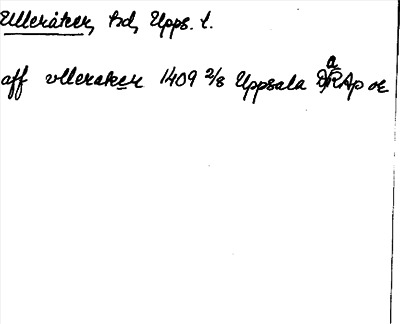 Ulleråker, hd, Upps. l.
aff vlleraker 1409 2/8 Uppsala RAp or